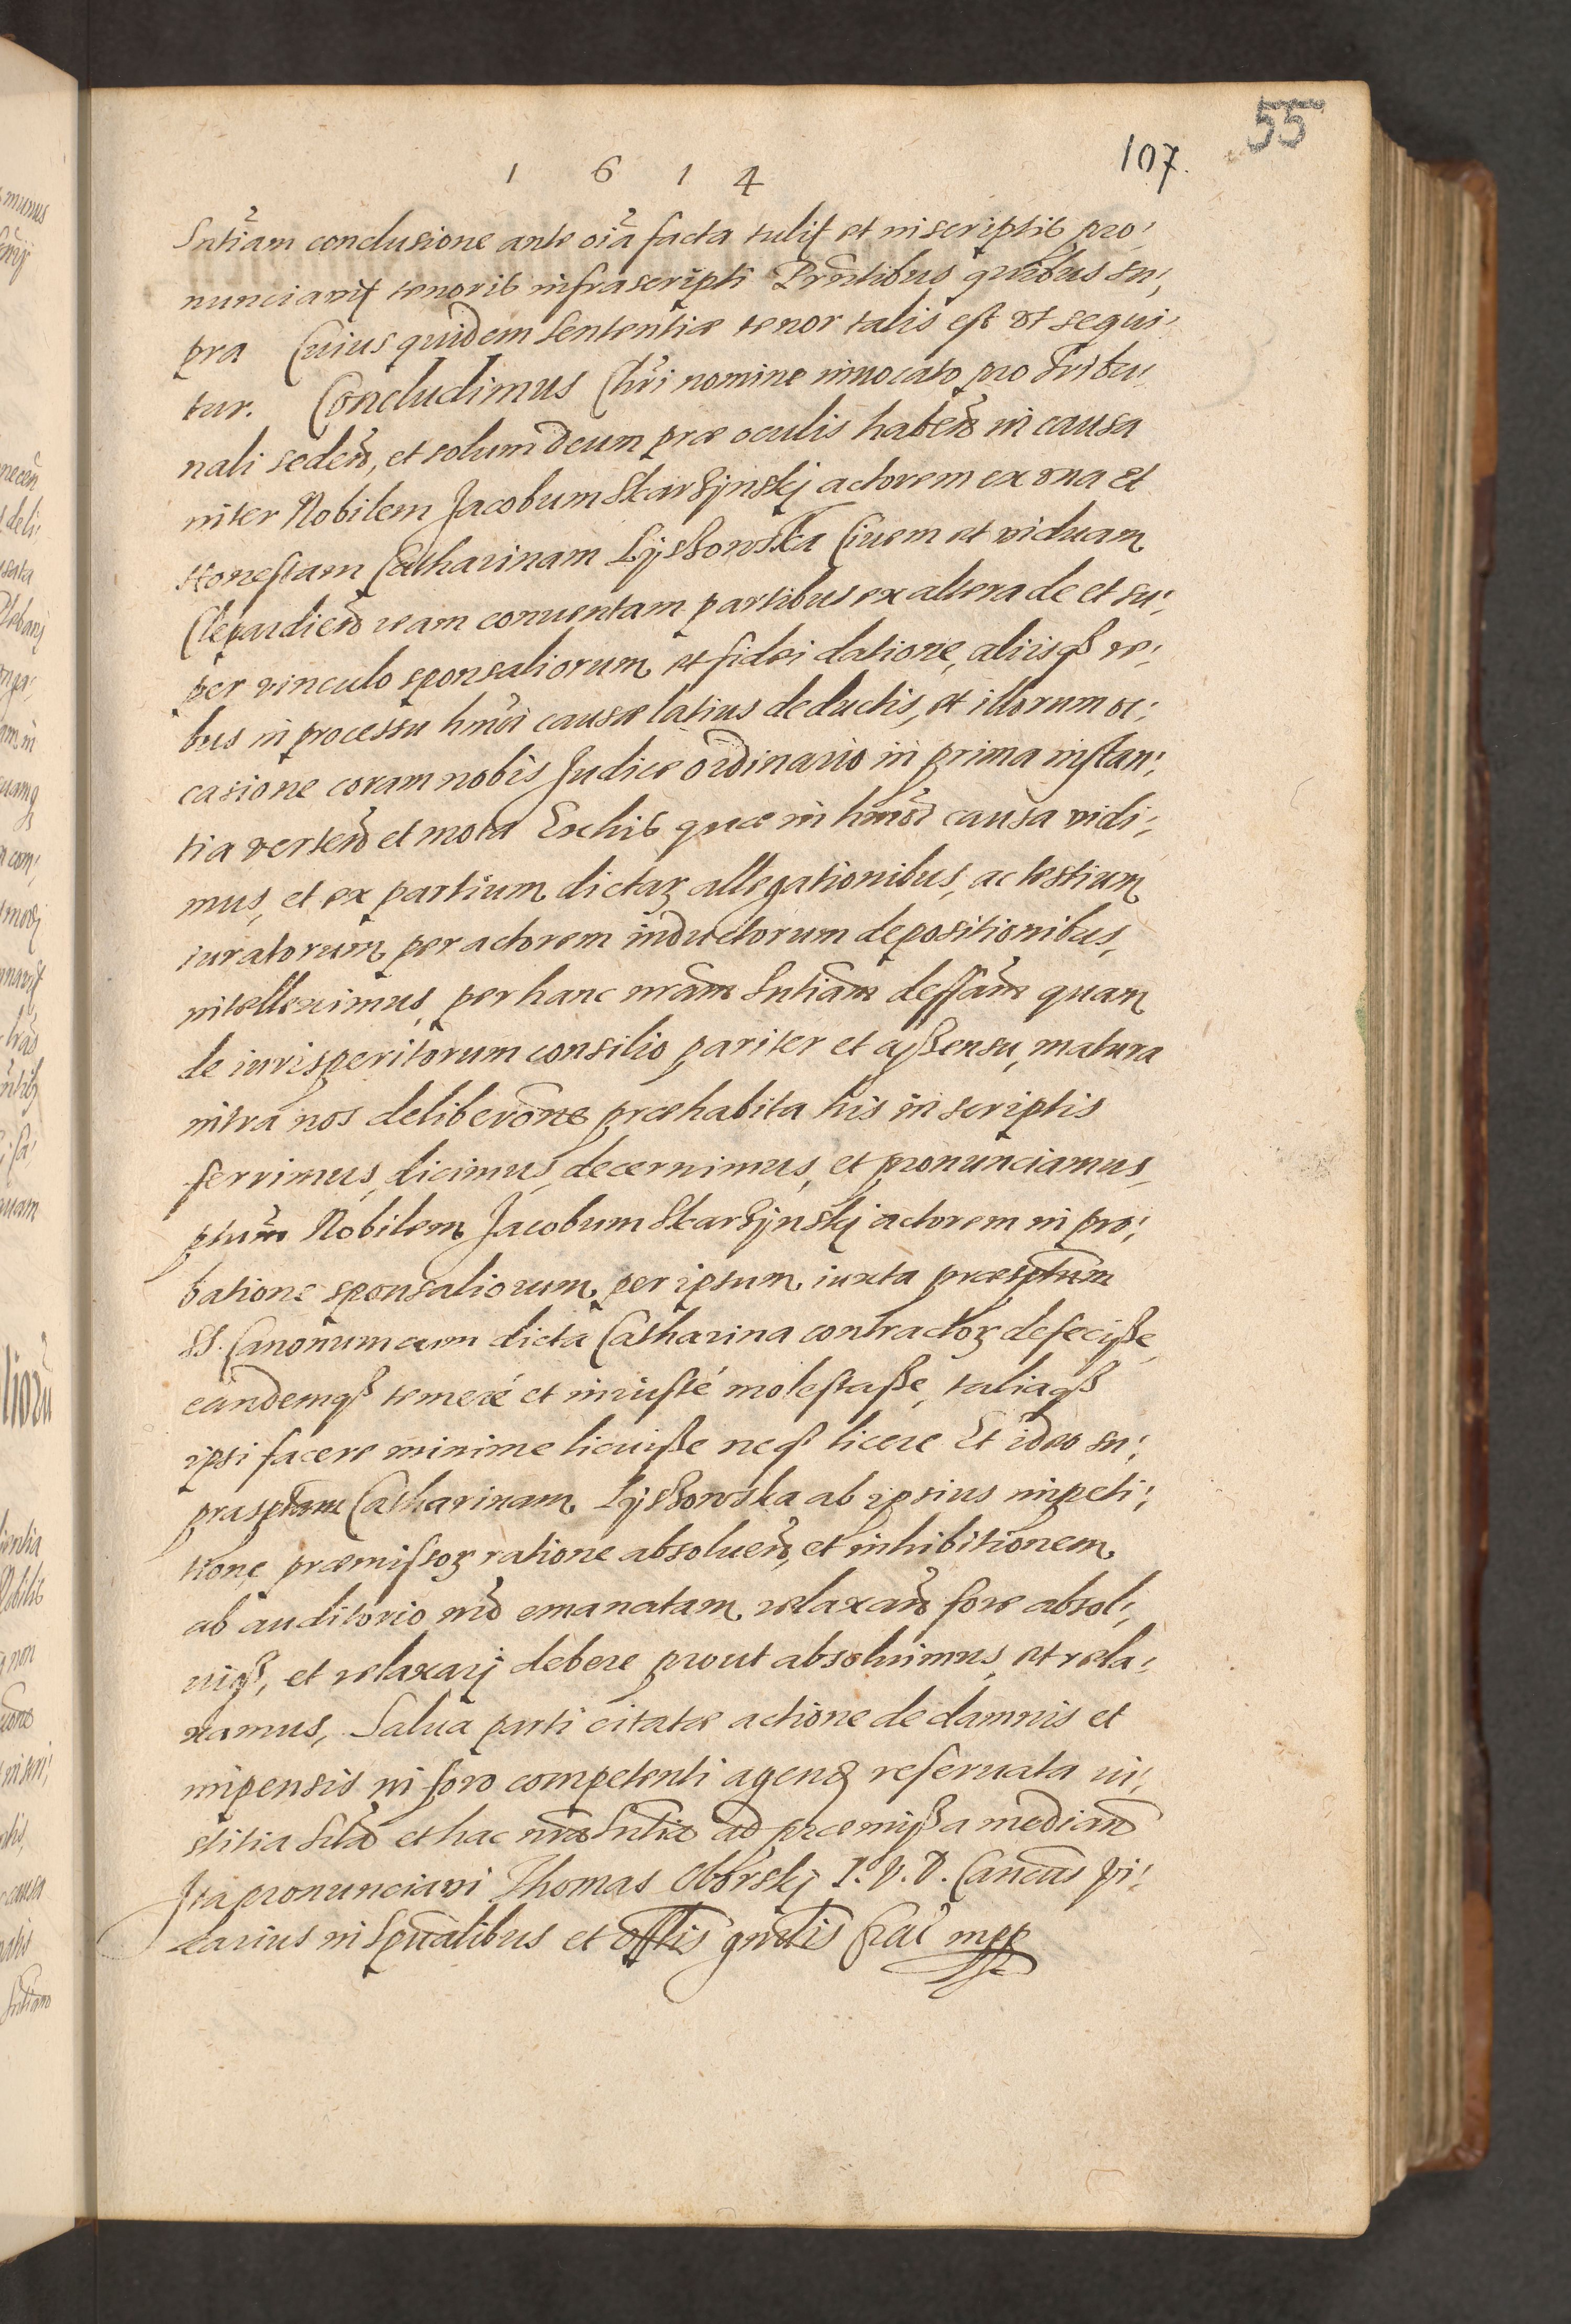 55
107.
1 6 1 4
Sntiam conclusione ante oia facta tulit et in scriptis pro¦
nunciavit tenoris infrascripti Prntibus quibus su¦
pra Cuius quidem sententiæ tenor talis est vt sequi¦
tur. Concludimus Chri nomine inuocato pro Tribu¦
nali seden, et solum deum præ oculis haben in causa
inter Nobilem Jacobum Skarszÿnskj actorem ex vna et
Honestam Catharinam Lÿszowska Ciuem et viduam
Clepardien ream conuentam partibus ex altera de et su¦
per vinculo sponsaliorum et fidei datione, aliisqß re¦
bus in processu hmoi causæ latius deductis, et illorum oc¦
casione coram nobis Judice ordinario in prima instan¦
tia verten et mota Ex his quæ in hmoi causa vidi¦
mus, et ex partium dictaꝝ allegationibus, ac testium
iuratorum per actorem inductorum depositionibus,
intelleximus, per hanc nram Sntiam deffam quam
de iurisperitorum consilio pariter et assensu, matura
intra nos deliberone præhabita his in scriptis
ferrimus, dicimus, decernimus, et pronunciamus,
ptum Nobilem Jacobum Skarszÿnskj actorem in pro¦
batione sponsaliorum per ipsum iuxta præsptum
SS. Canonum cum dicta Catharina contractoꝝ defecisse,
eandemqß temeré et iniusté molestasse, taliaqß
ipsi facere minime licuisse neqß licere Et ideo su¦
prasptam Catharinam Lÿszowska ab ipsius impeti¦
tione præmissoꝝ ratione absoluen, et inhibitionem
ab auditorio nro emanatam relaxan fore absol¦
uiqß, et relaxarj debere prout absoluimus, et rela¦
xamus, Salua parti citatæ actione de damnis et
impensis in foro competenti agend reseruata iu¦
stitia et hac nra Sntia ad præmissa median
Ita pronunciavi Thomas Oborskj I. V. D. Cancus Vi¦
carius in Spualibus et Offlis gnalis Crac mpp